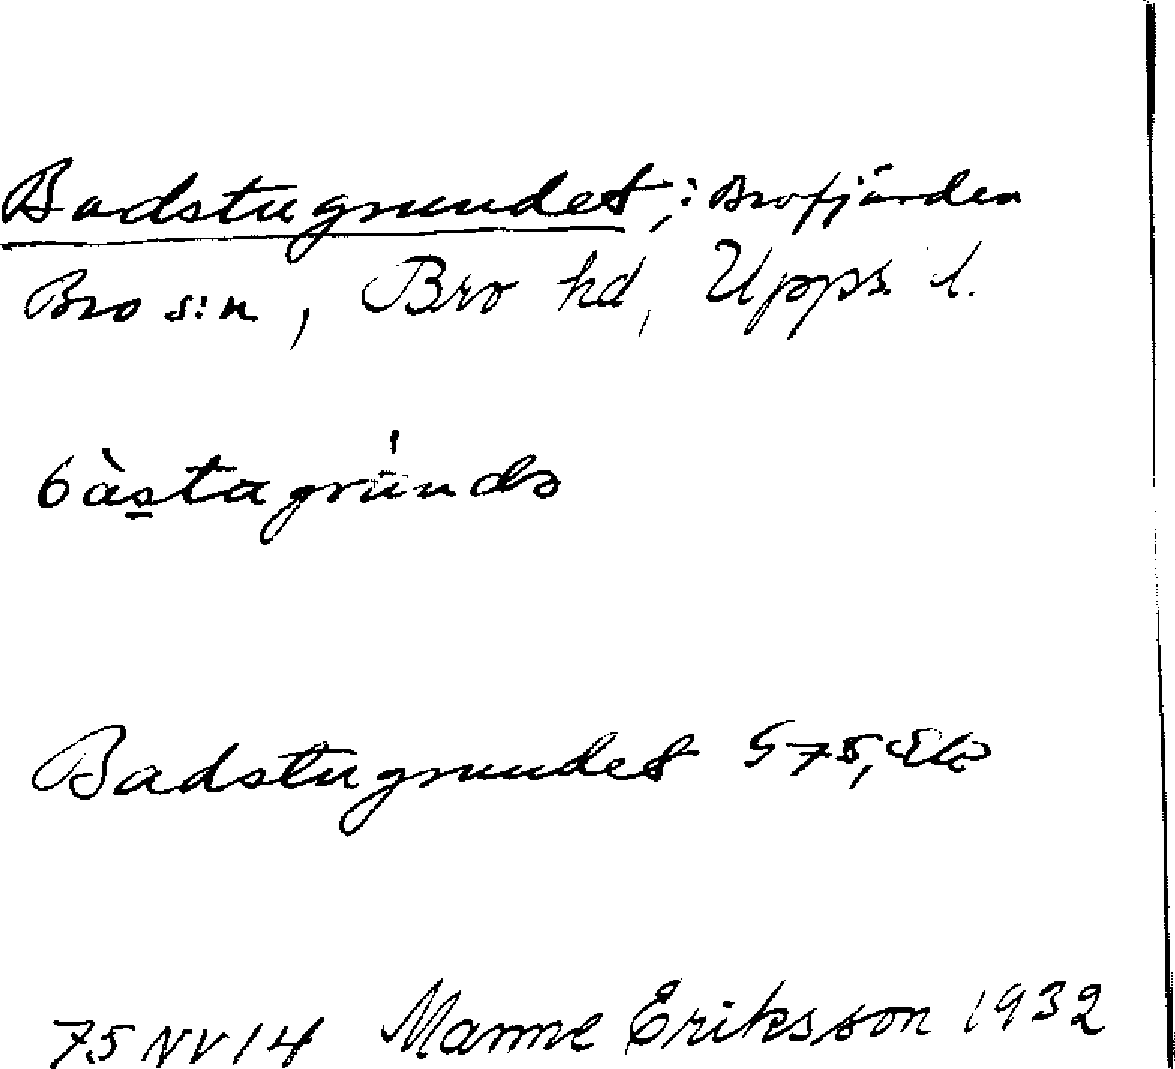 Badstugrundet, i Brofjärden
Bro s:n, Bro hd, Upps. l.
bàstagrúndə
Badstugrundet G 75, Ek
75 NV 14 Manne Eriksson 1932